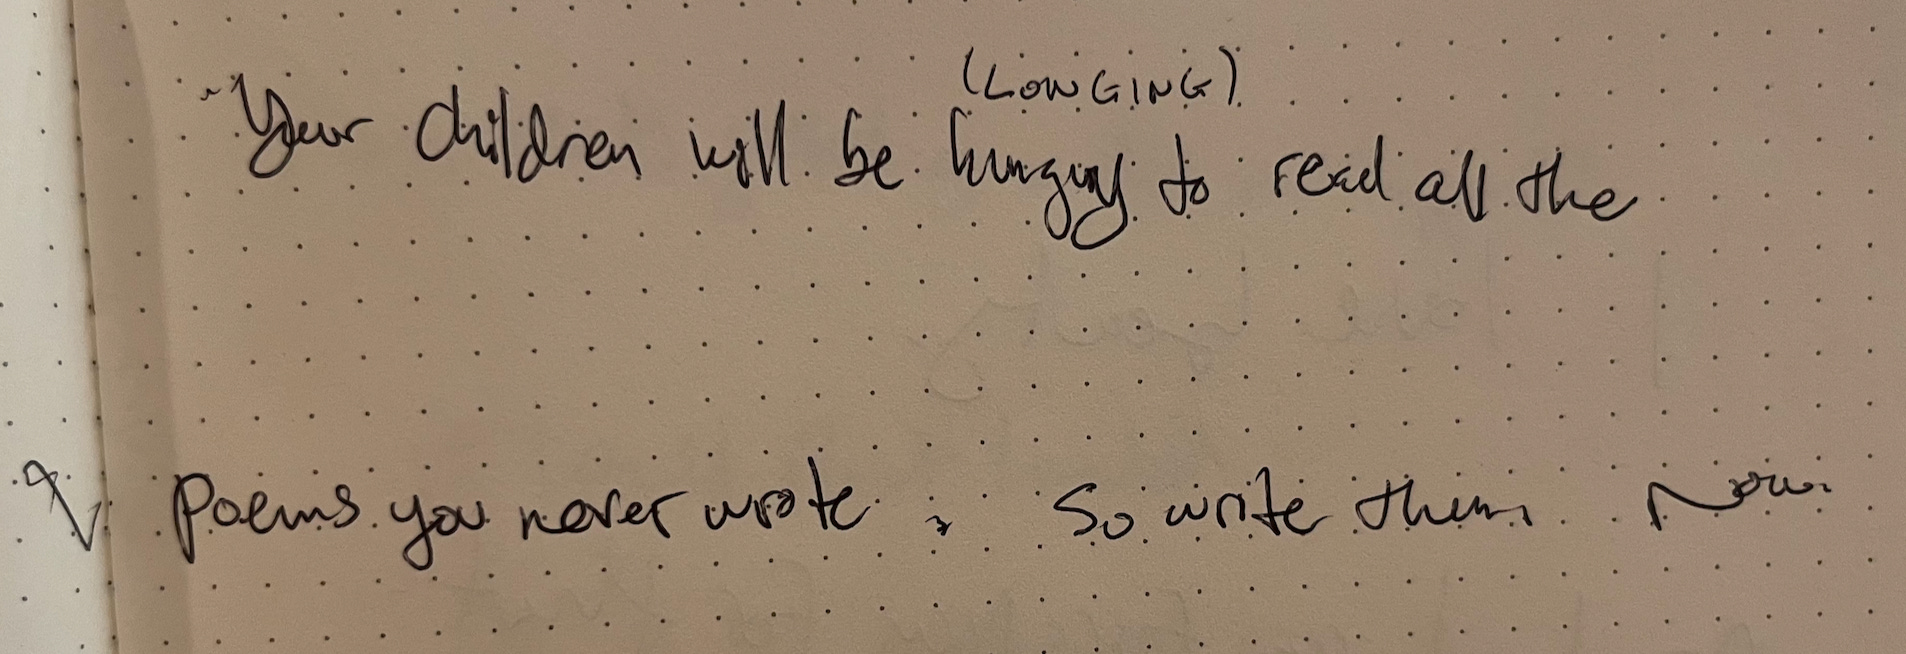 (LONGING)
"Your children will be hungry to read all the
poems you never wrote, So write them now.